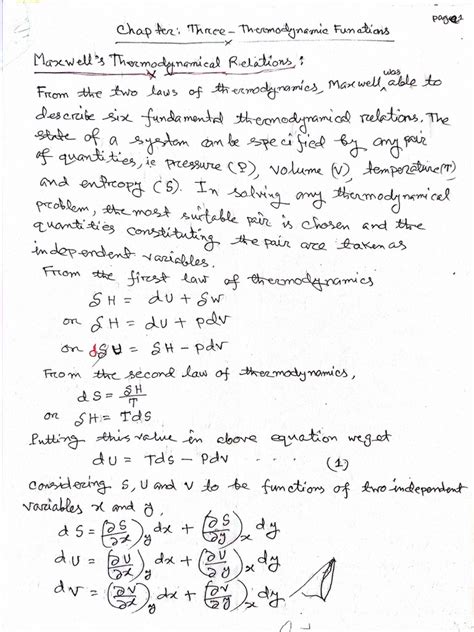 page-1
Chapter: Three - Thermodynamic Functions
Maxwell's Thermodynamical Relations:
From the two laws of thermodynamics, Maxwell was able to
describe six fundamental thermodynamical relations. The
state of a system can be specified by any pair
of quantities, ie pressure (P), volume (V), temperature (T)
and entropy (S). In solving any thermodynamical
problem, the most suitable pair is chosen and the
quantities constituting the pair are taken as
independent variables.
From the first law of thermodynamics
δH = dU + δW
or δH = dU + PdV
or dU = δH - PdV
From the second law of thermodynamics,
dS = δH/T
or δH = TdS
Putting this value in above equation we get
dU = TdS - PdV . . . . (1)
Considering S, U and V to be functions of two independent
variables x and y,
dS = (∂S/∂x)_y dx + (∂S/∂y)_x dy
dU = (∂U/∂x)_y dx + (∂U/∂y)_x dy
dV = (∂V/∂x)_y dx + (∂V/∂y)_x dy